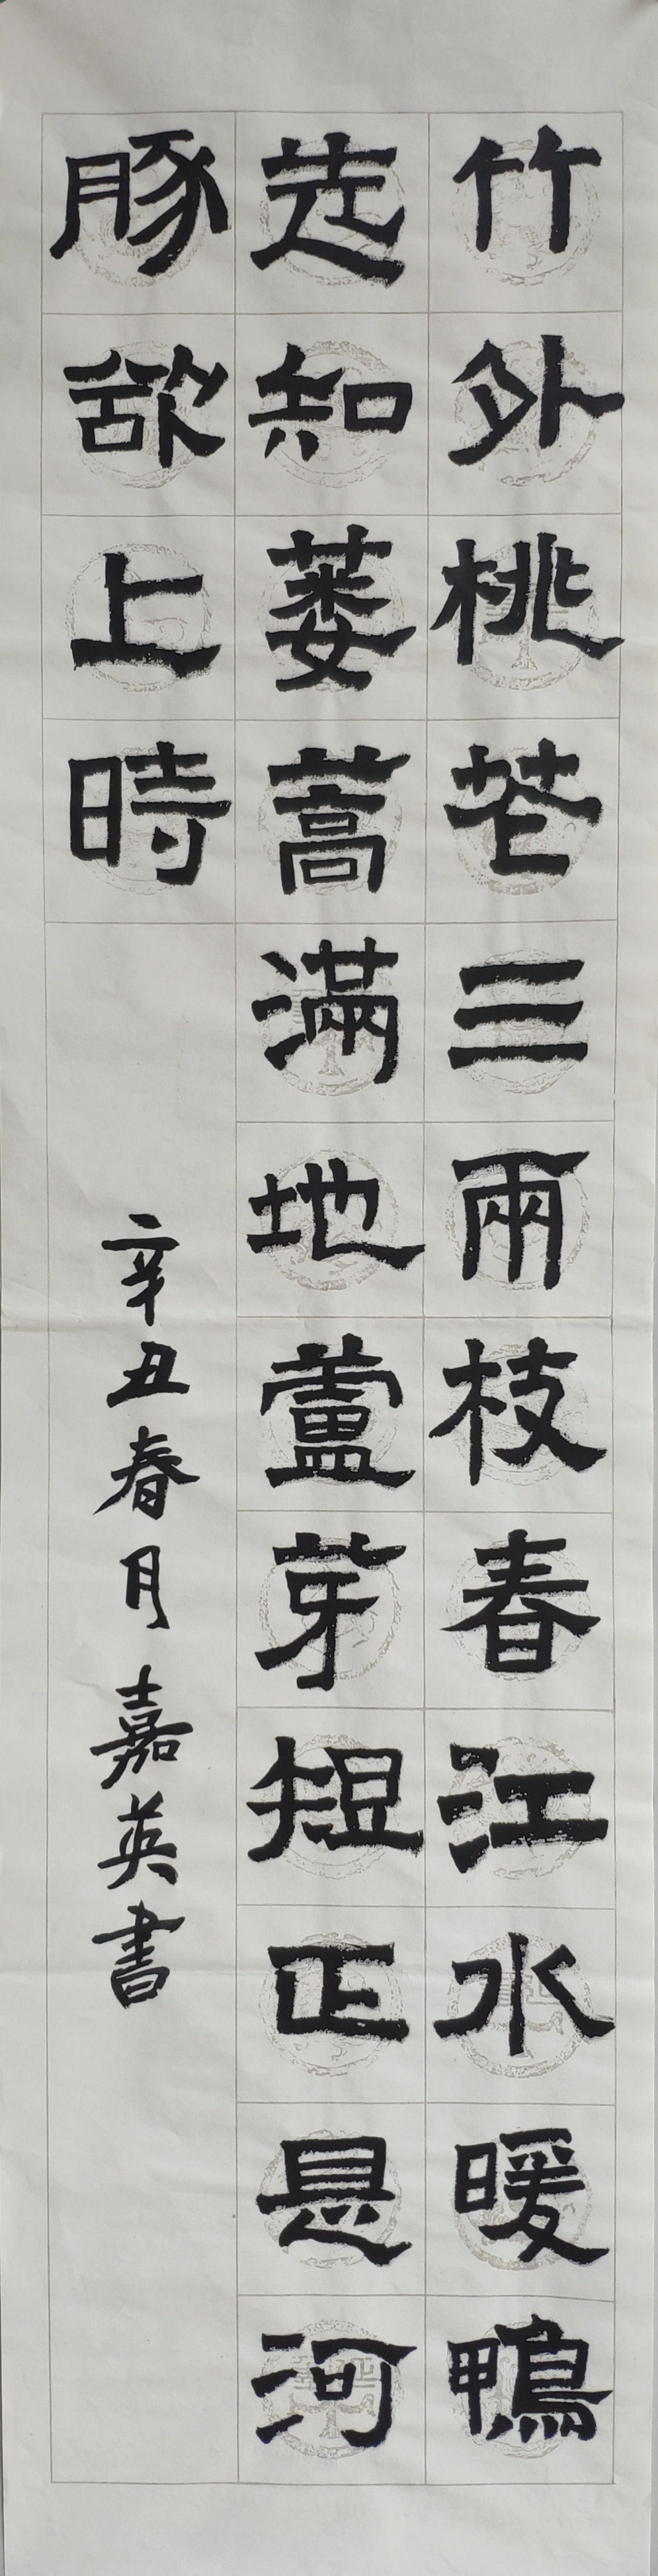 竹外桃花三兩枝春江水暖鴨
先知蔞蒿滿地蘆芽短正是河
豚欲上時
辛丑春月 嘉英書